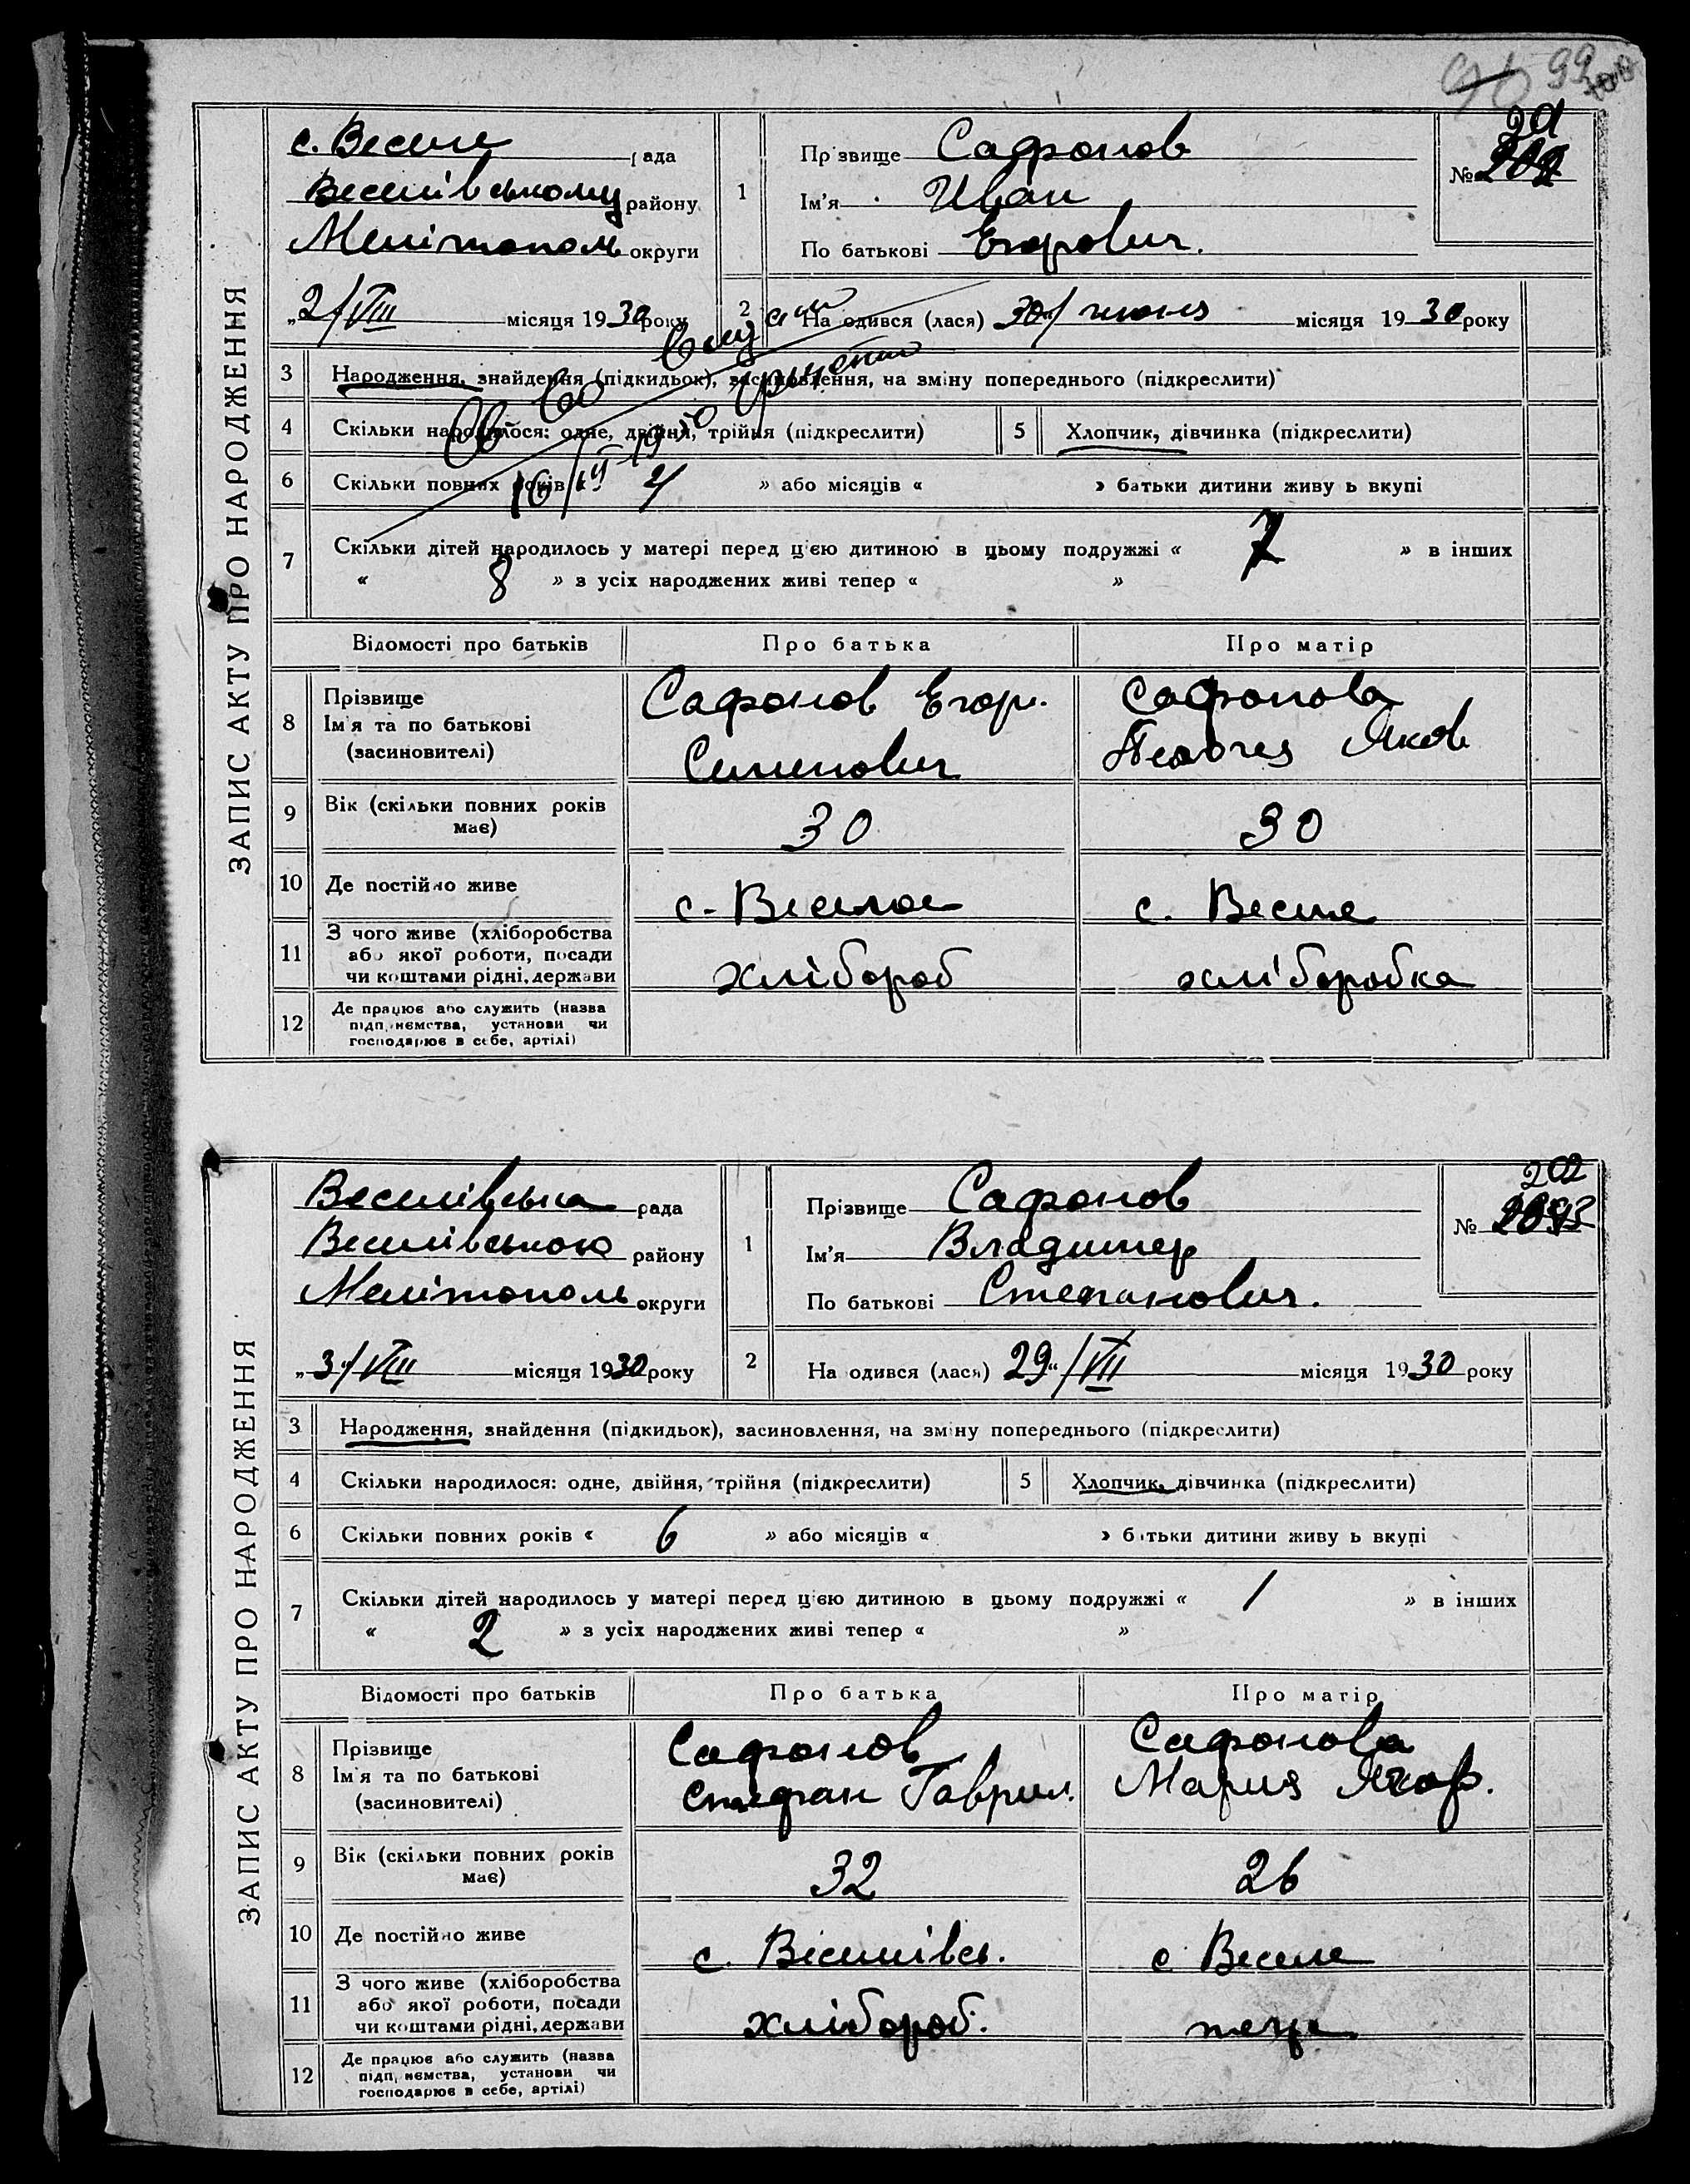 99
ЗАПИС АКТУ ПРО НАРОДЖЕННЯ
с. Веселе рада
Веселівському району
Мелітополь округи
„2/VIII місяця 1930 року
1
Прізвище Сафонов
Ім'я Иван
По батькові Егорович.
№ 201
2 На одився (лася) 30/ июня місяця 1930 року
3 Народження, знайдення (підкидьок), засиновлення, на зміну попереднього (підкреслити)
4 Скільки народилося: одне, двійня, трійня (підкреслити)
5 Хлопчик, дівчинка (підкреслити)
6 Скільки повних років « » або місяців « » батьки дитини живу ь вкупі
7 Скільки дітей народилось у матері перед цією дитиною в цьому подружжі « 7 » в інших
« 8 » з усіх народжених живі тепер « »
Відомості про батьків Про батька Про матір
8 Прізвище
Ім'я та по батькові
(засиновителі)
Сафонов Егор.
Сафонова
Яков
9 Вік (скільки повних років має)
30
30
10 Де постійно живе
с. Веселое
с. Веселе
11 З чого живе (хліборобства
або якої роботи, посади
чи коштами рідні, держави
хлібороб
хліборобка
12 Де працює або служить (назва
підп, иємства, установи чи
господарює в себе, артілі)
ЗАПИС АКТУ ПРО НАРОДЖЕННЯ
Веселівська рада
Веселівського району
Мелітополь округи
„3/VIII місяця 1930 року
1
Прізвище Сафонов
Ім'я Владимер
По батькові Степанович.
№ 202
2 На одився (лася) 29„/VII місяця 1930 року
3 Народження, знайдення (підкидьок), засиновлення, на зміну попереднього (підкреслити)
4 Скільки народилося: одне, двійня, трійня (підкреслити)
5 Хлопчик, дівчинка (підкреслити)
6 Скільки повних років « 6 » або місяців « » батьки дитини живу ь вкупі
7 Скільки дітей народилось у матері перед цією дитиною в цьому подружжі « 1 » в інших
« 2 » з усіх народжених живі тепер « »
Відомості про батьків Про батька Про матір
8 Прізвище
Ім'я та по батькові
(засиновителі)
Сафонов
Стефан Гаврил.
Сафонова
Мария
9 Вік (скільки повних років має)
32
26
10 Де постійно живе
с. Веселівсь.
с. Веселе
11 З чого живе (хліборобства
або якої роботи, посади
чи коштами рідні, держави
хлібороб.
12 Де працює або служить (назва
підп, иємства, установи чи
господарює в себе, артілі)